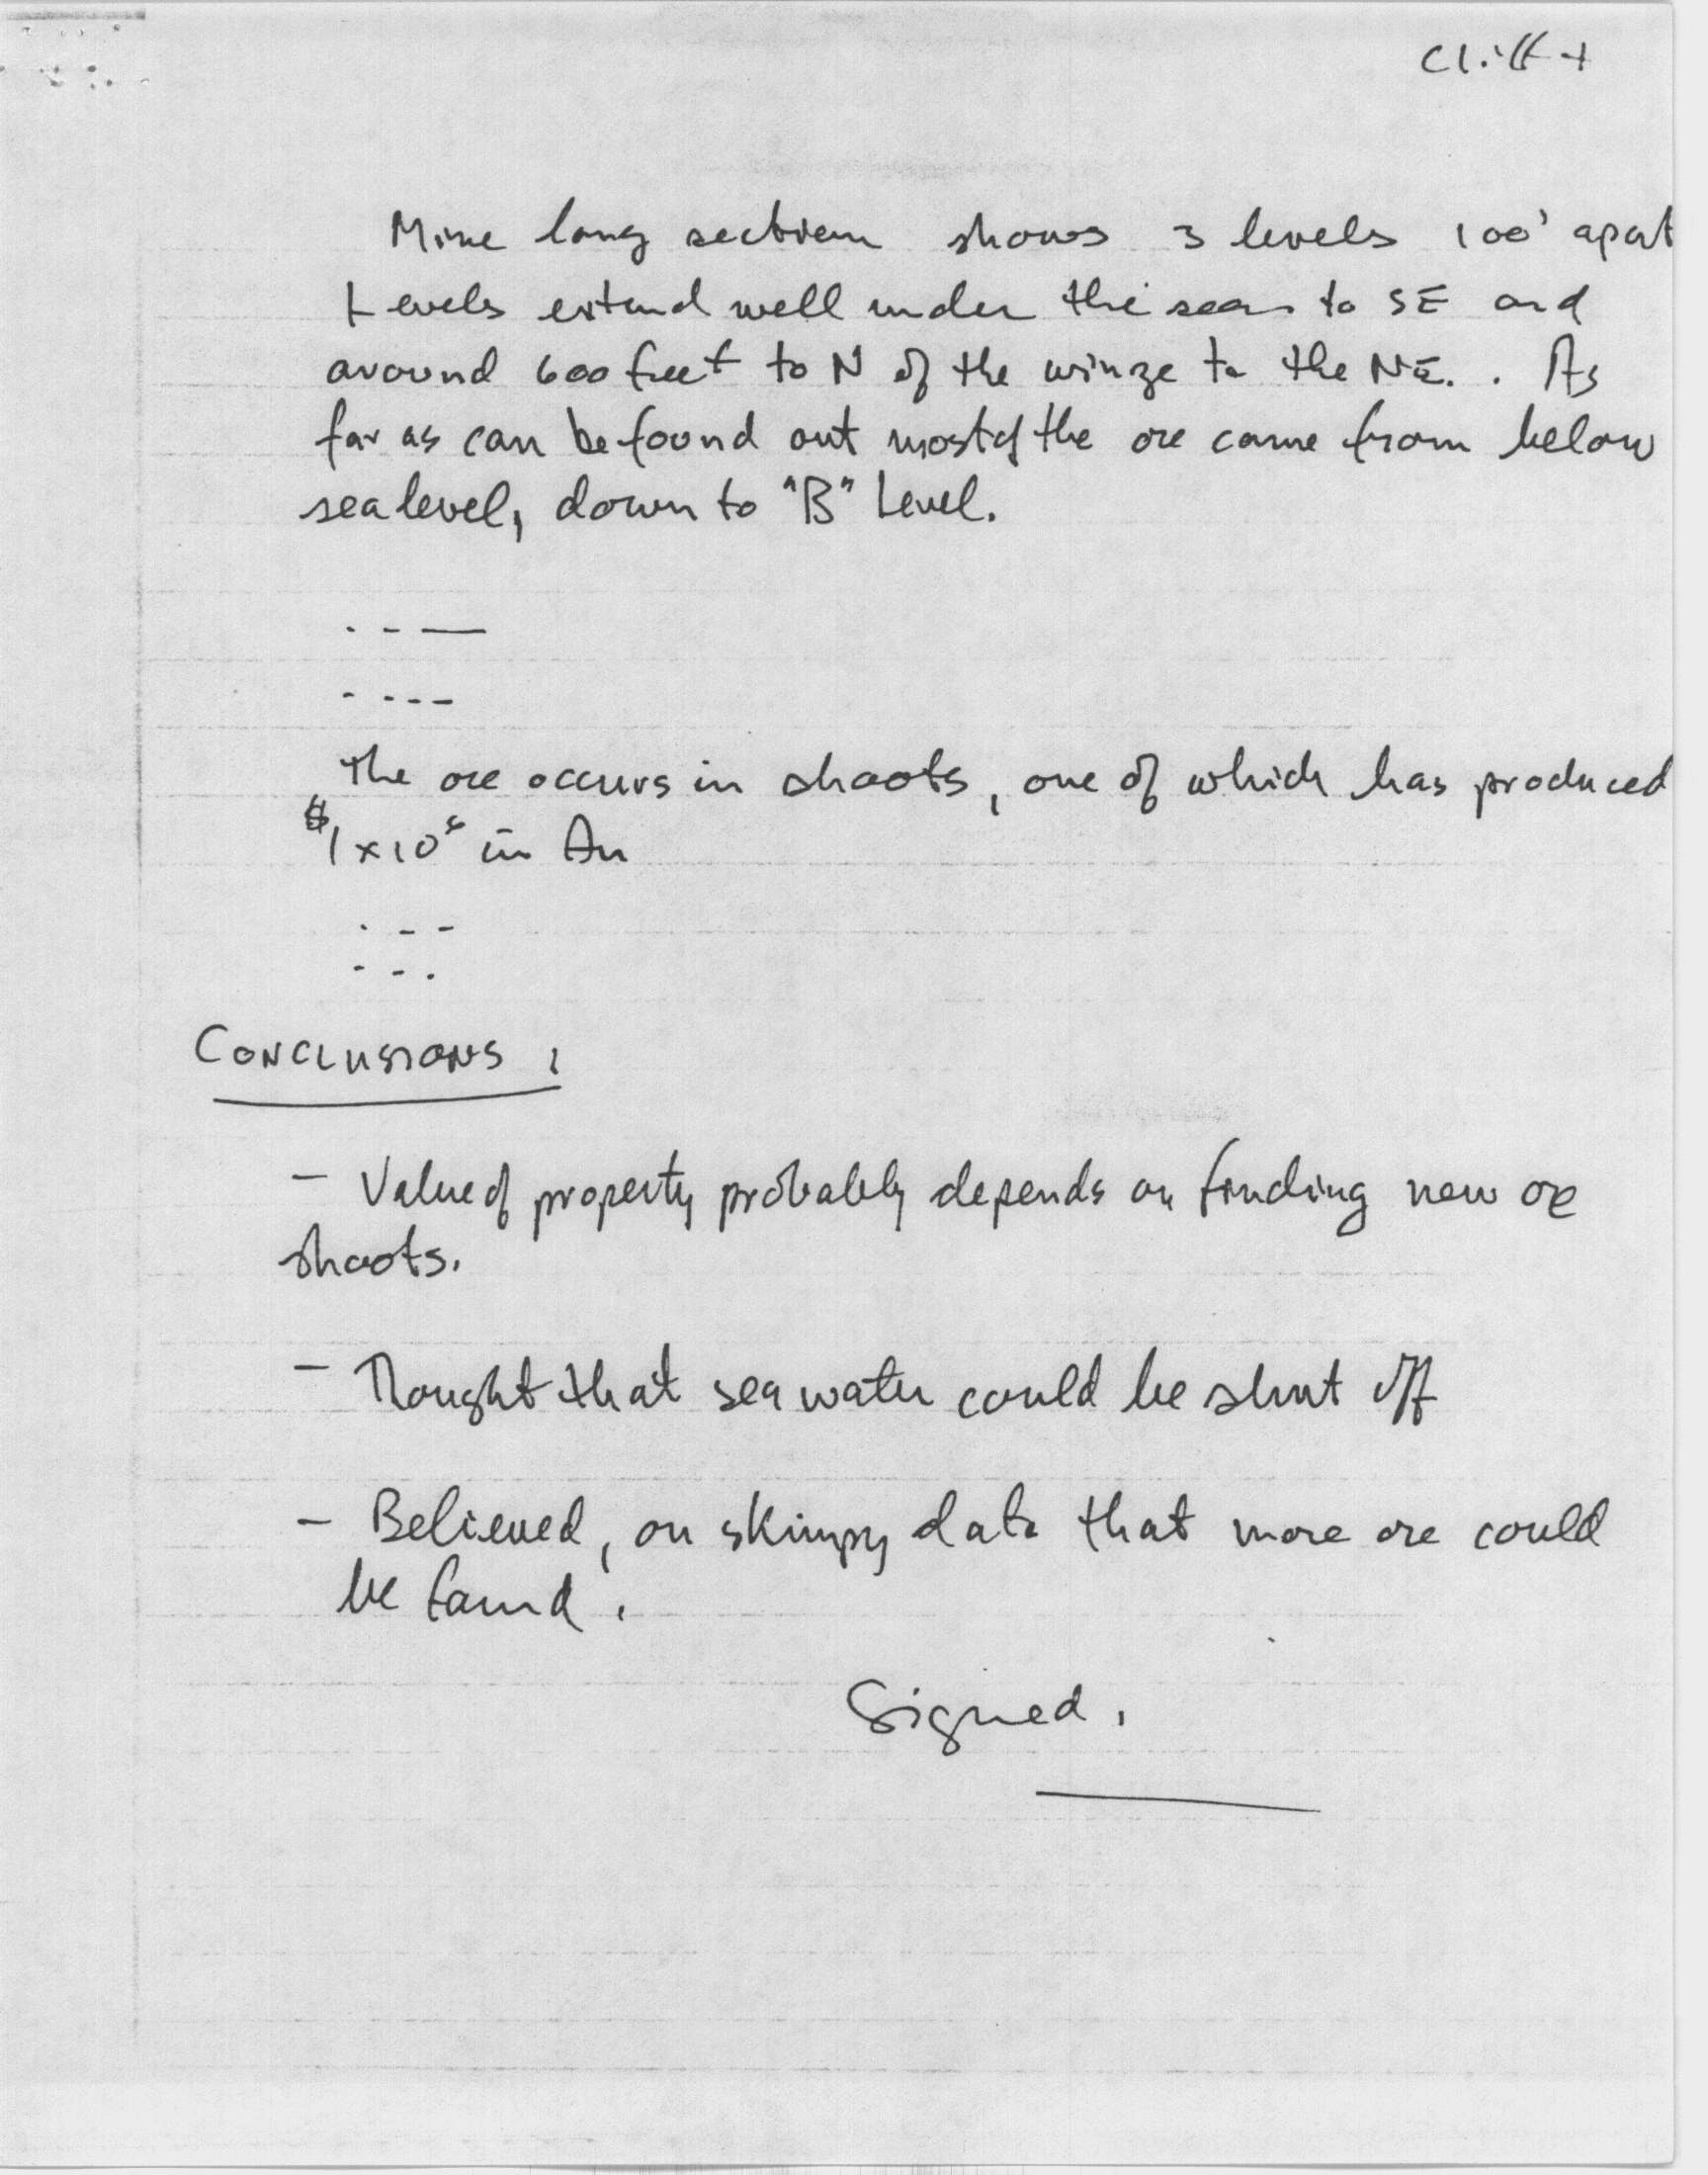 Cliff +
Mine long section shows 3 levels 100' apart
Levels extend well under the sea to SE and
around 600 feet to N of the winze to the NE. . As
far as can be found out most of the ore came from below
sea level, down to "B" Level.
. - —
- - - -
The ore occurs in shoots, one of which has produced
$1x10⁶ in Au
. - -
- - .
CONCLUSIONS :
- Value of property probably depends on finding new ore
shoots.
- Thought that sea water could be shut off
- Believed, on skimpy data that more ore could
be found.
Signed,